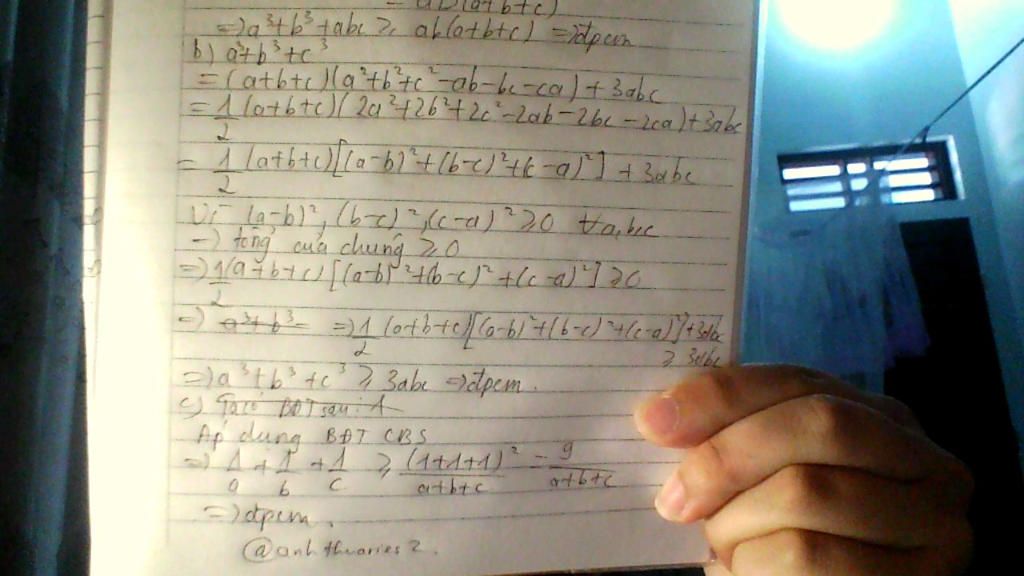 = ab(a+b+c)
=> a³+b³+abc ≥ ab(a+b+c) => đpcm
b) a³+b³+c³
= (a+b+c)(a²+b²+c²-ab-bc-ca) + 3abc
= 1/2 (a+b+c)(2a²+2b²+2c²-2ab-2bc-2ca)+3abc
= 1/2 (a+b+c)[(a-b)²+(b-c)²+(c-a)²] + 3abc
Vì (a-b)², (b-c)², (c-a)² ≥0 ∀a,b,c
-) tổng của chúng ≥0
=> 1/2 (a+b+c)[(a-b)²+(b-c)²+(c-a)²] ≥0
=> a³+b³= => 1/2 (a+b+c)[(a-b)²+(b-c)²+(c-a)²]+3abc
≥ 3abc
=> a³+b³+c³ ≥ 3abc => đpcm.
c) Ta có BĐT sau: 1
Áp dụng BĐT CBS
=> 1/a + 1/b + 1/c ≥ (1+1+1)²/a+b+c = 9/a+b+c
=> đpcm.